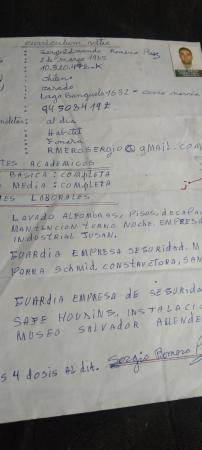 curriculum vitae
: Sergio Edmundo Romero
: 2 de marzo 1965
: 10.320.472-K
: chileno
: casado
: Lago Banguelo 1632 - cerro navia
: 94503419
: al dia
: Habitat
: Fonasa
: RMEROSERGIO@gmail.com
TES ACADEMICOS
BASICA : COMPLETA
MEDIA : COMPLETA
TES LABORALES
LAVADO ALFOMBRAS, PISOS, DECAPA
MANTENCION TURNO NOCHE. EMPRESA
INDUSTRIAL JUSAN.
GUARDIA EMPRESA SEGURIDAD. M
FORMA SCHMID, CONSTRUCTORA, SAN
GUARDIA EMPRESA DE SEGURIDA
SAFE HOUSING, INSTALACIO
MUSEO SALVADOR ALLENDE
S 4 DOSIS AL DIA.
Sergio Romero